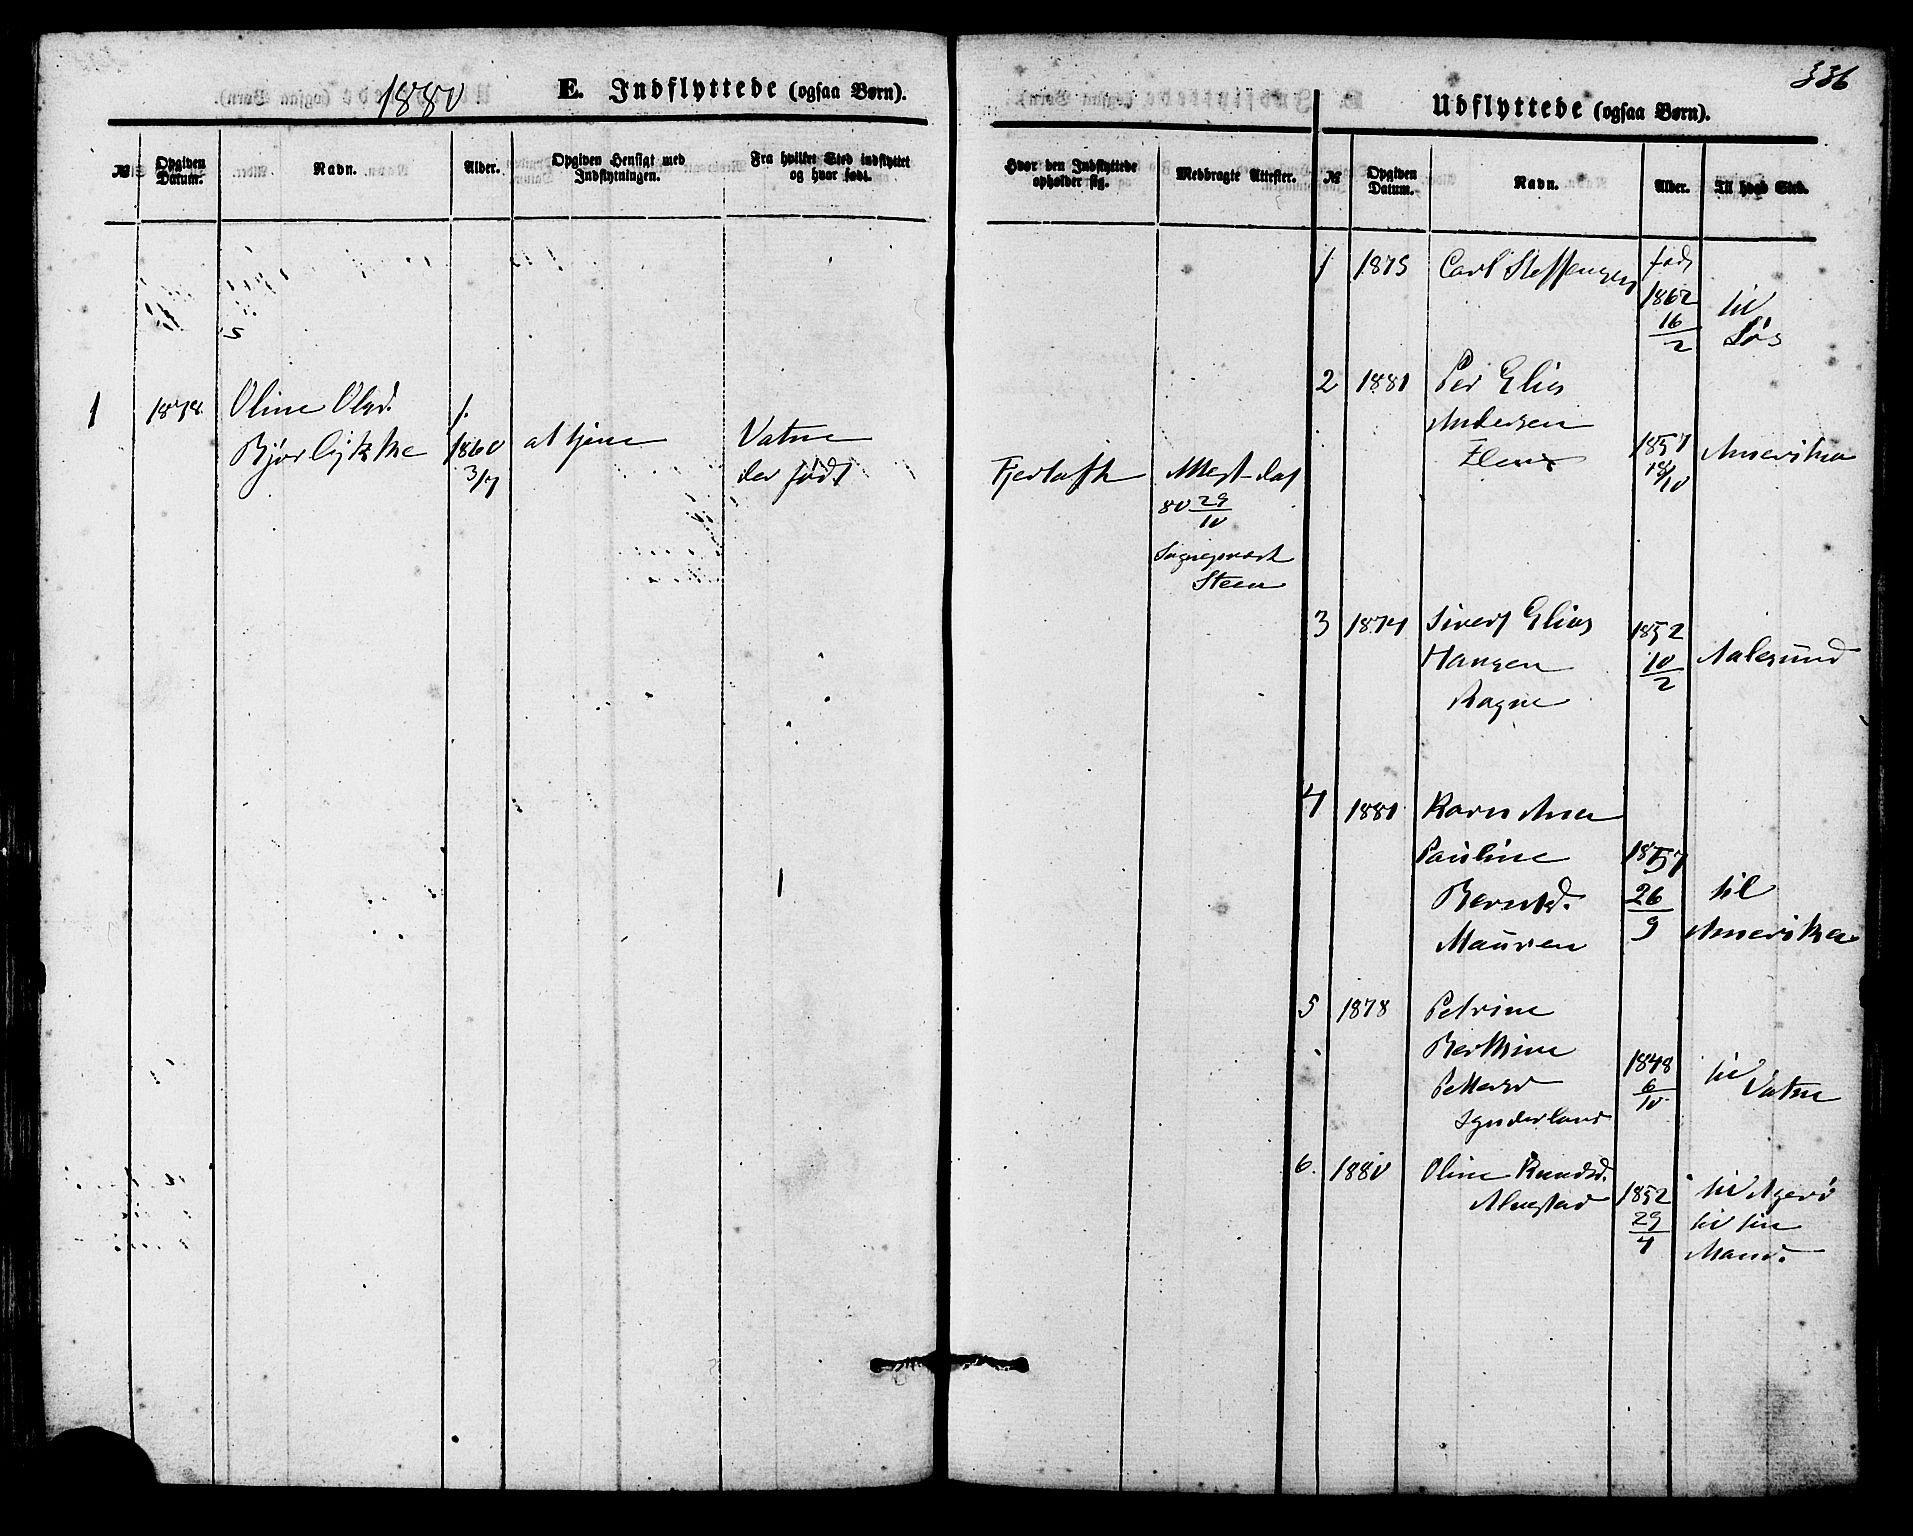 1880
E. Indflyttede (ogsaa Børn).
№
Opgiven Datum.
Navn.
Alder.
Opgiven Hensigt med Indflytningen.
Fra hvilket Sted indflyttet og hvor født.
1
1878
Oline Olsd.
Bjørlykke
f.
1860
3/7
at tjene
Vatne
der født
336
Udflyttede (ogsaa Børn).
Hvor den Indflyttede opholder sig.
Medbragte Attester.
№
Opgiven Datum.
Navn.
Alder.
Til hvad Sted.
Fjertoft
Attest
80 29/10
Sogneprest
Steen
1
1875
Carl Steffensen
født
1862
16/2
til
2
1881
Per Elias
Andersen
1857
18/10
Amerika
3
1874
Sivert Elias
Hansen
Rogne
1852
10/2
Aalesund
4
1881
Karen Ana
Pauline
Berntsd.
Mauren
1857
26/9
til
Amerika
5
1878
Petrine
Berthine
Pettersd
Synderland
1848
6/10
til
Vatne
6.
1880
Oline Knudsd.
Alnestad
1852
29/4
til Agerø
til sin
Mand.